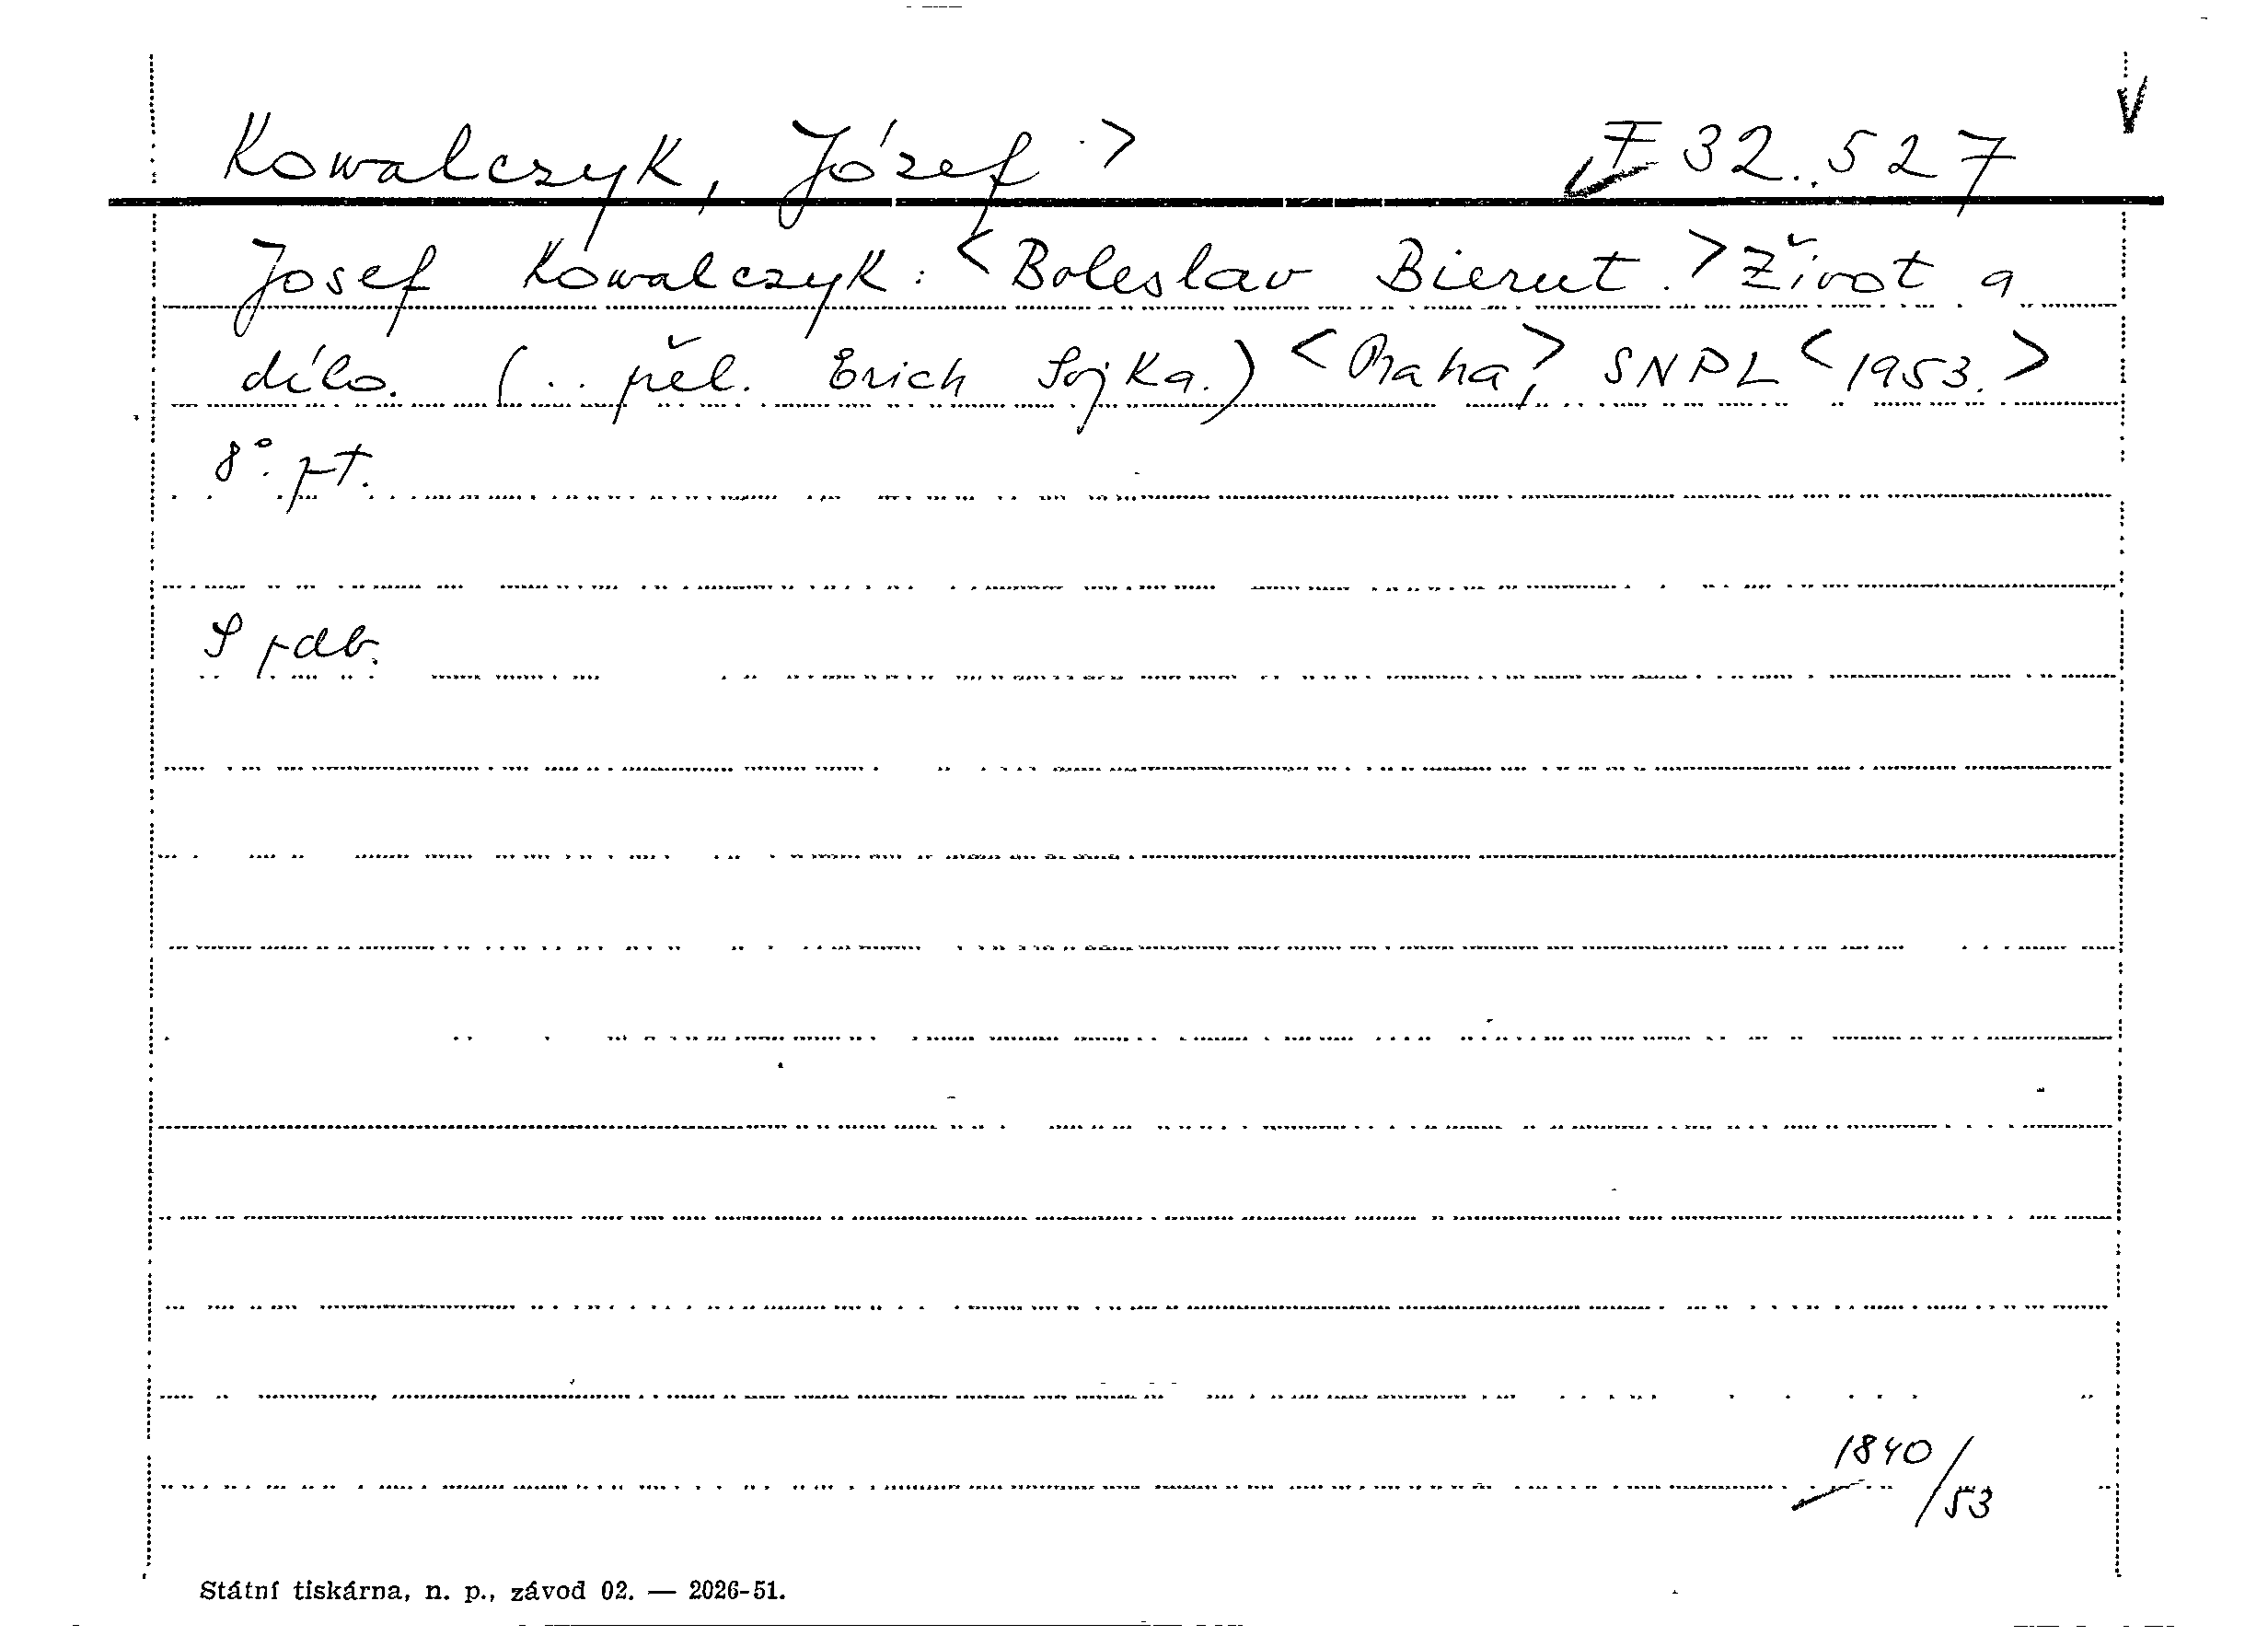 Kowalczyk, Józef > F 32.527
Josef Kowalczyk: <Boleslav Bierut.> Život a
dílo. (.. přel. Erich Sojka.) <Praha,> SNPL <1953.>
8°. pt.
S pdb.
1840/53
Státní tiskárna, n. p., závod 02. — 2026-51.